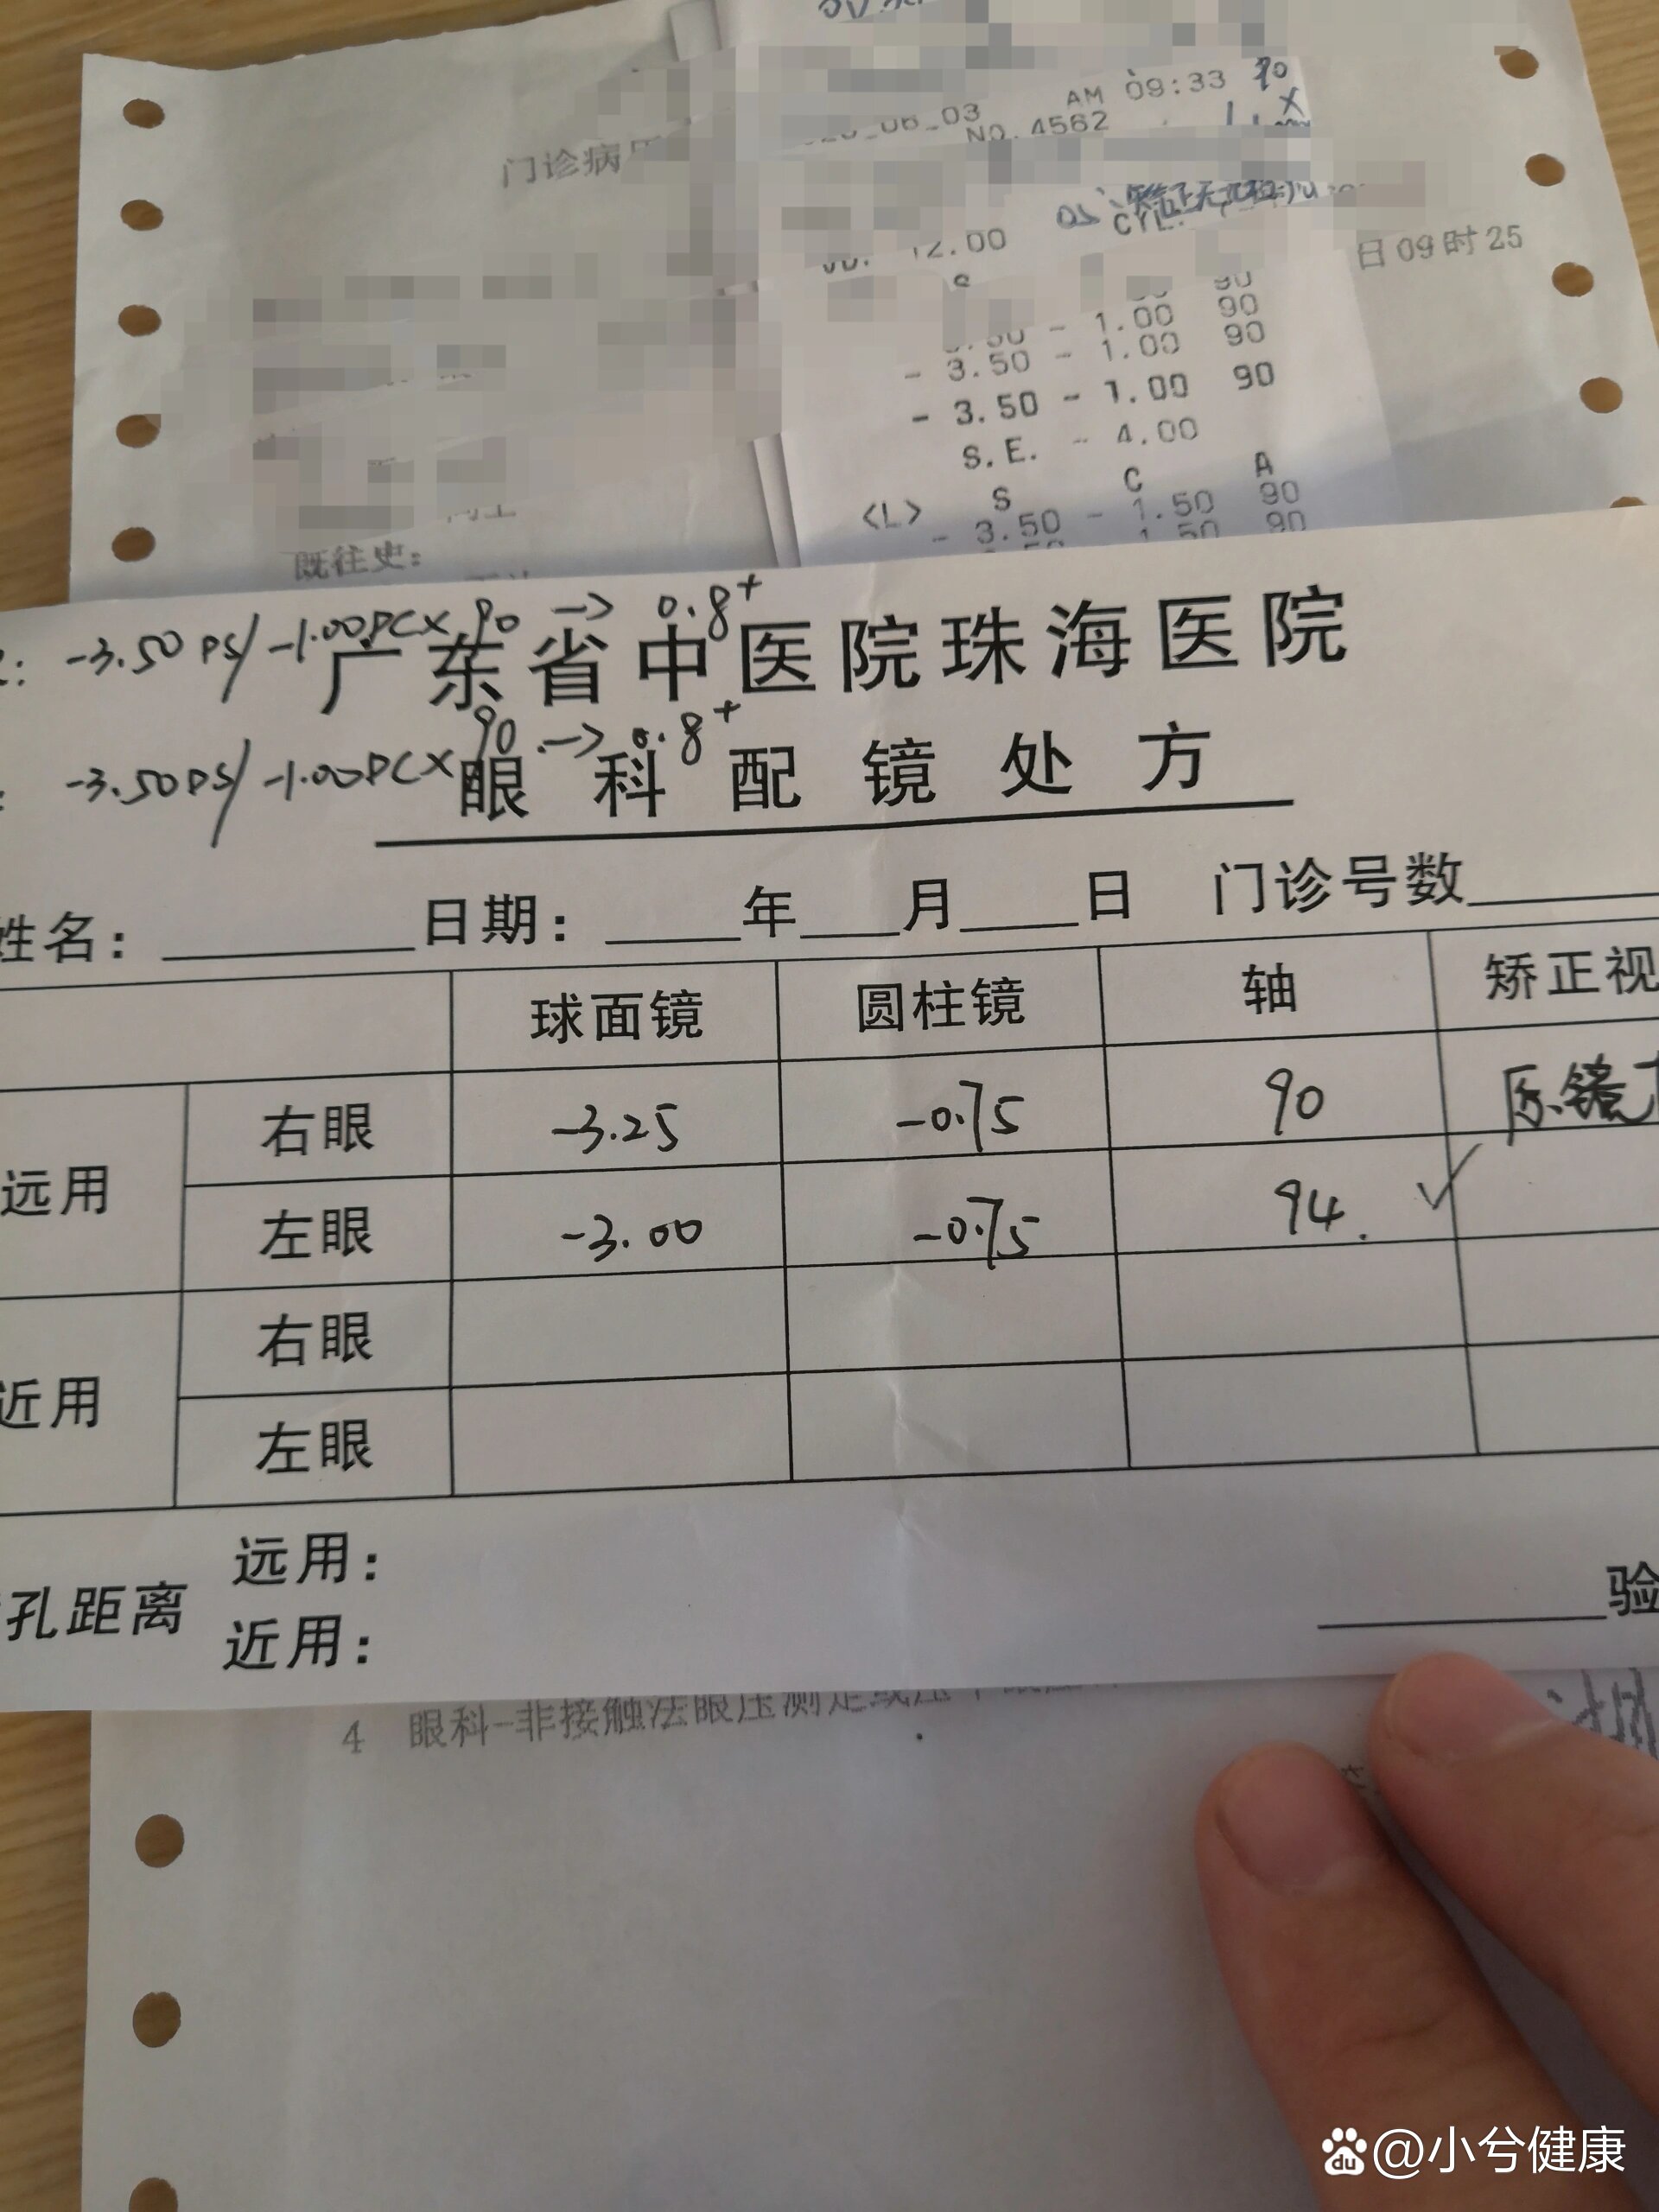 AM 09:33 90
NO.4562
门诊病
12.00
CYL.
日09时25
- 1.00 90
- 3.50 - 1.00 90
- 3.50 - 1.00 90
S.E. - 4.00
<L> S C A
- 3.50 - 1.50 90
1.50 90
既往史:
-3.50 DS/-1.00DC×90 → 0.8+
广东省中医院珠海医院
-3.50DS/-1.00DC×90 → 0.8+
眼科配镜处方
姓名: 日期: 年 月 日 门诊号数
球面镜 圆柱镜 轴 矫正视
远用 右眼 -3.25 -0.75 90 原镜
左眼 -3.00 -0.75 94. ✓
近用 右眼
左眼
孔距离 远用:
近用:
验
4 眼科-非接触法眼压测定
du @小兮健康